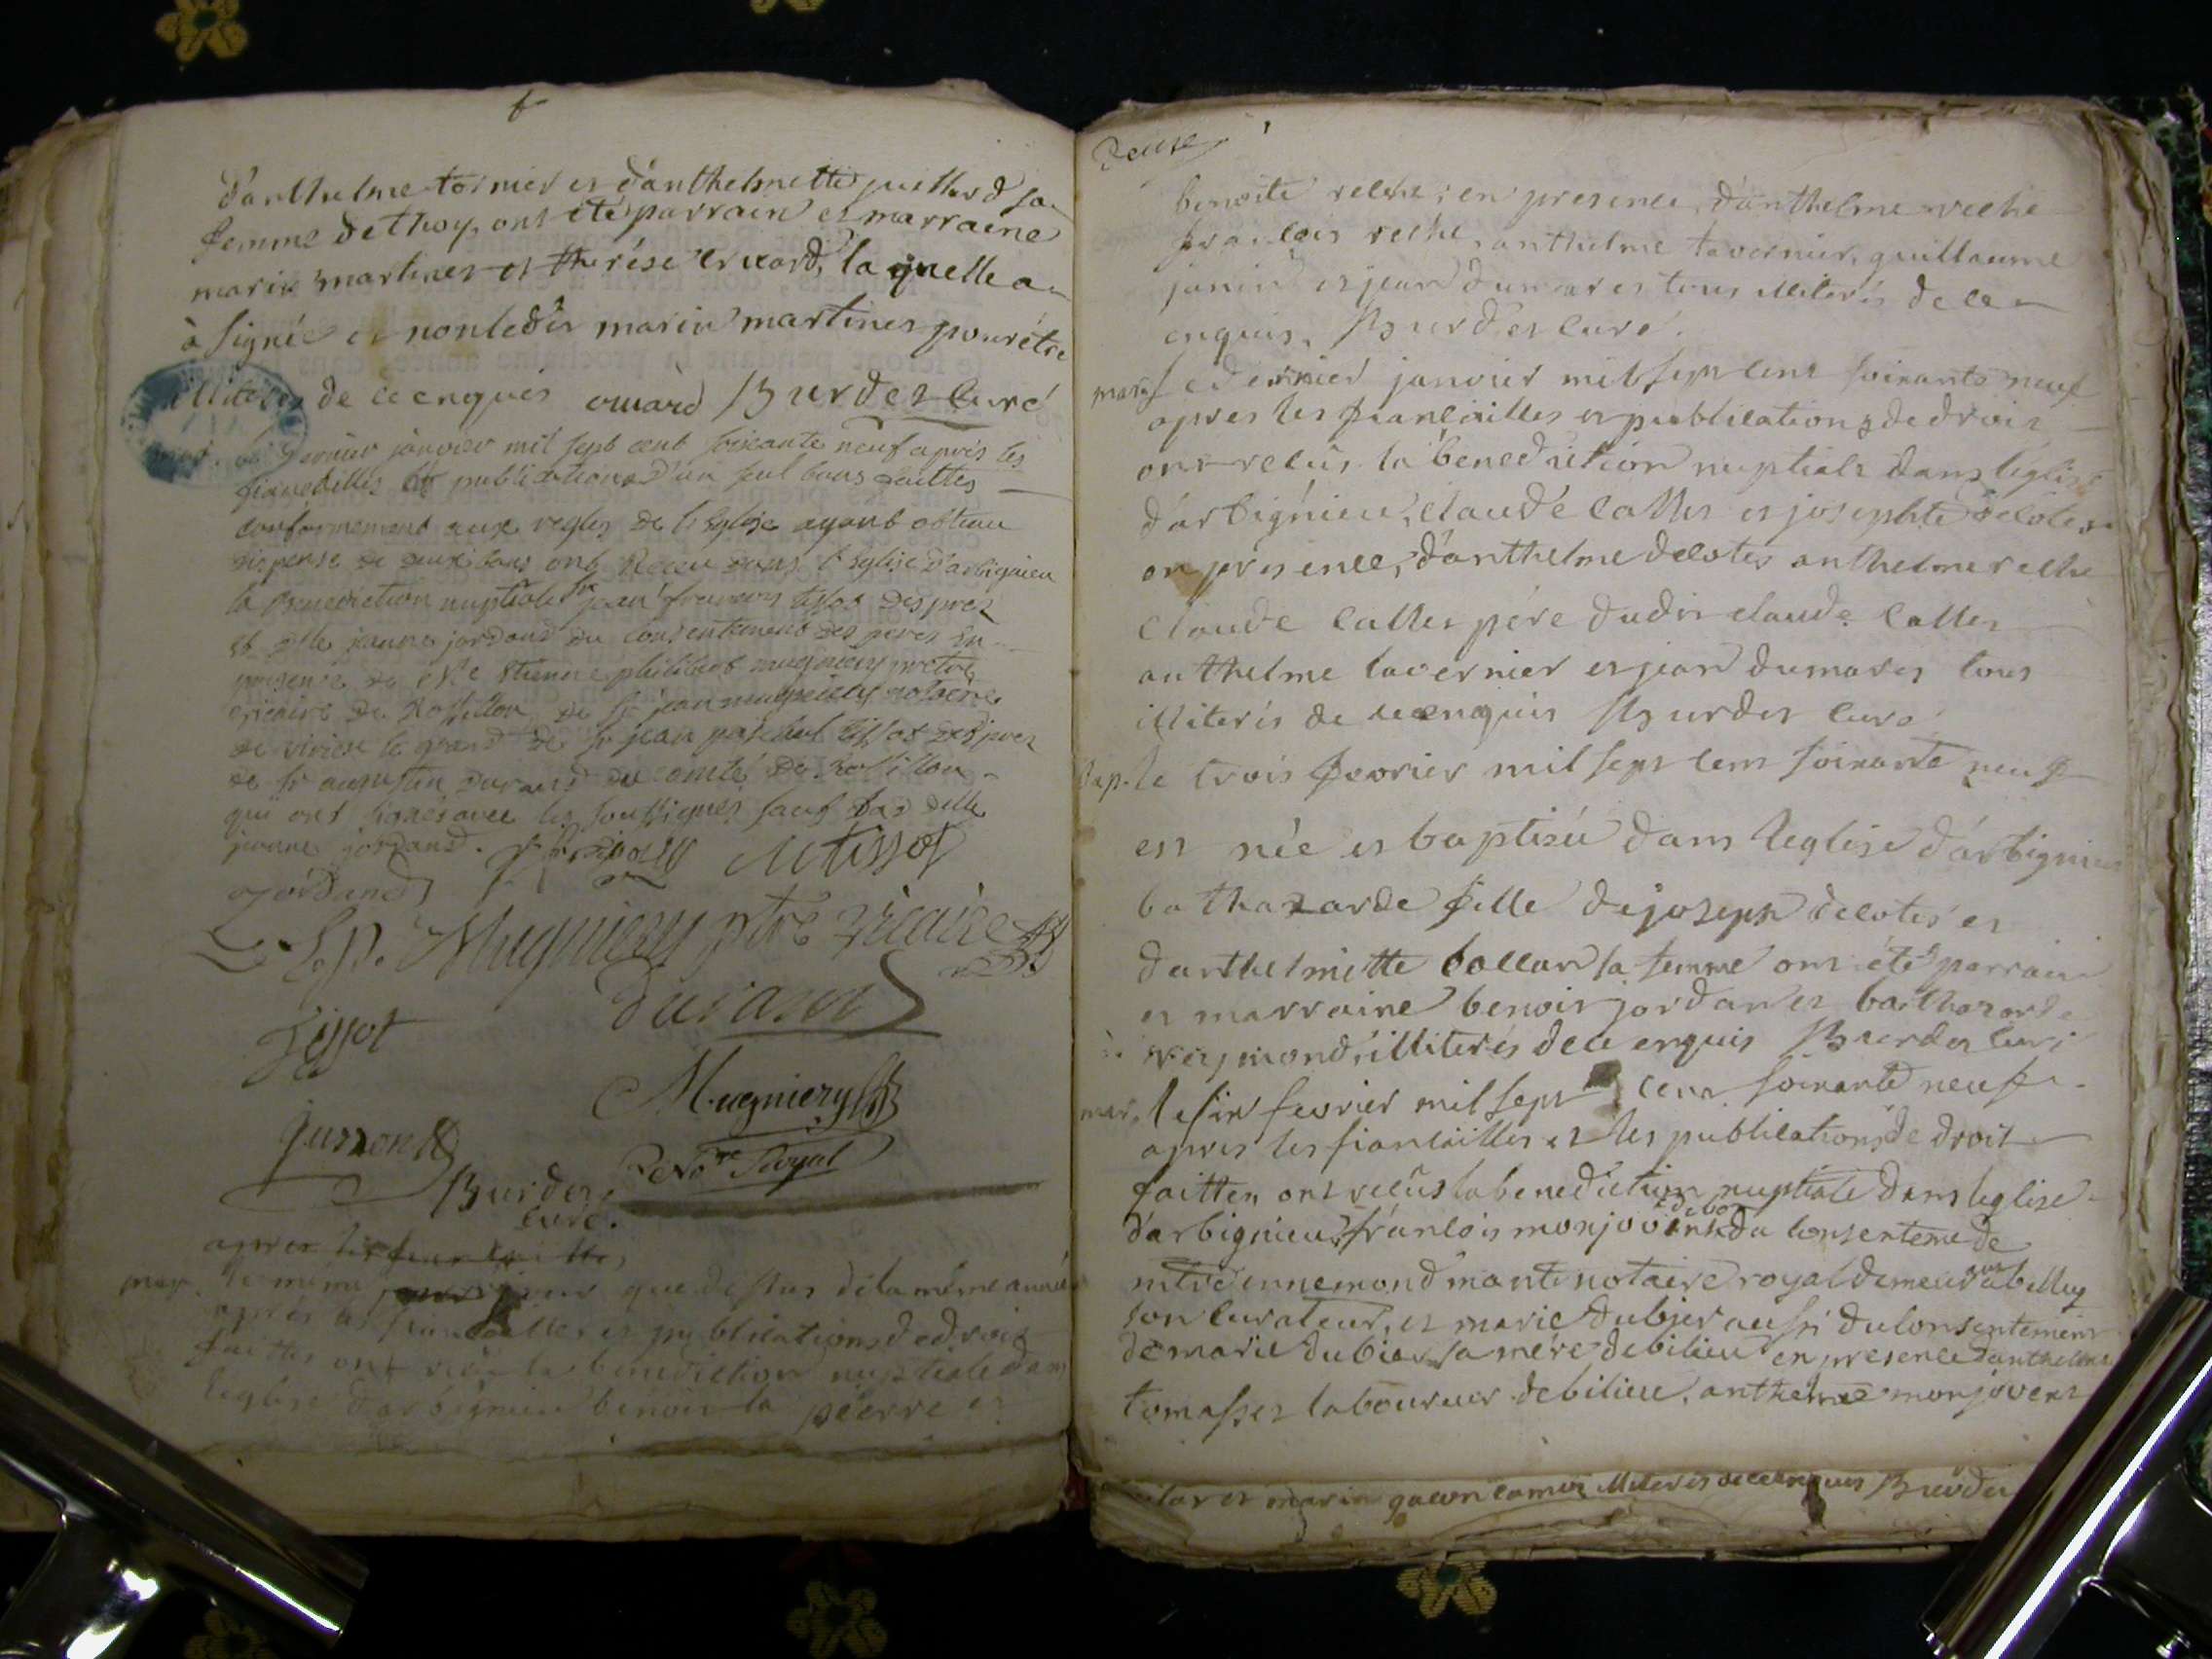 d'anthelme tornier et d'anthelmette juillard sa
femme de thoy, ont été parrain et marraine
marin martinet et thérése ervard, la quelle a
à signée et non ledit marin martinet pour étre
illiteré de ce enquis Burdet curé
le dernier janvier mil sept cent soixante neuf après les
fiancailles et publications d'un seul bans faittes
conformement aux regles de l'Eglise ayant obtenu
dispense de deux bans ont Receu dans l'Eglise d'arbignieu
la Benediction nuptiale sr jean françois tissot Desprez
et dlle jeanne jordand du consentement des peres en
presence de Etienne philibert mugniery pretre
vicaire de Rossillon de sr jean mugniery notaire
de virieu le grand de sr jean tissot desprez
de sr augustin durand du comté de Rossillon
qui ont signés avec les soussignés sauf dlle
jeanne jordand. Tissot
jordand
Mugniery ptre vicaire
Tissot
Durand
Mugniery
Jurron
Burdet
curé.
Royal
après les
mar. le même jour que dessus de la même année
après les fiancailles et publications de droit
faittes ont reçu la benediction nuptiale dans
l'eglise d'arbignieu benoit la pierre et
benoite relhe; en presence, d'anthelme relhe
françois relhe, anthelme tavernier, guillaume
janin et jean dumaret tous illiterés de ce
enquis, Burdet curé.
mar. le dernier janvier mil sept cent soixante neuf
apres les fiancailles et publications de droit
ont reçus la benediction nuptiale dans l'eglise
d'arbignieu, claude calles et josephte delotes
en présence, d'anthelme delotes anthelme relhe
claude calles pére dudit claude calles
anthelme tavernier et jean dumares tous
illiterés de ce enquis Burdet curé
bap. le trois fevrier mil sept cent soixante neuf
est née et baptisée dans l'eglise d'arbignieu
bathazarde fille de joseph delotes et
d'anthelmette ballan sa femme ont été parrain
et marraine benoit jordan et bathazarde
reymond, illiterés de ce enquis Burdet curé
mar. le six fevrier mil sept cent soixante neuf
apres les fiancailles et les publications de droit
faittes, ont reçus la benediction nuptiale dans l'eglise
d'arbignieu, françois monjovent du consenteme de
mtre ennemond mante notaire royal demeurant a belley
son curateur, et marie dubier aussi du consentement
de marie dubier sa mére de bilieu en presence d'anthelme
tomasset laboureur de bilieu, anthelme monjovent
et marin illiterés de ce enquis Burdet